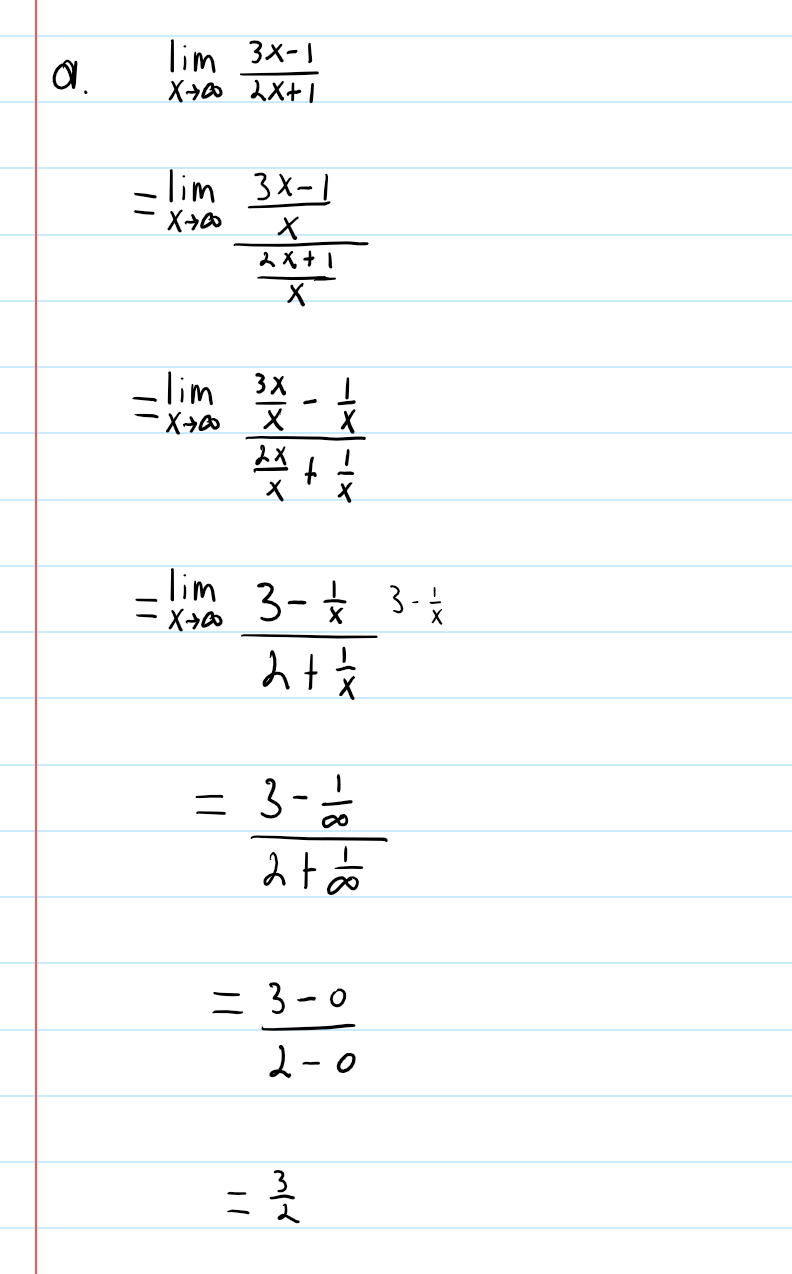 a. lim x→∞ (3x-1)/(2x+1)
= lim x→∞ ((3x-1)/x)/((2x+1)/x)
= lim x→∞ (3x/x - 1/x)/(2x/x + 1/x)
= lim x→∞ (3 - 1/x)/(2 + 1/x) 3 - 1/x
= (3 - 1/∞)/(2 + 1/∞)
= (3 - 0)/(2 - 0)
= 3/2